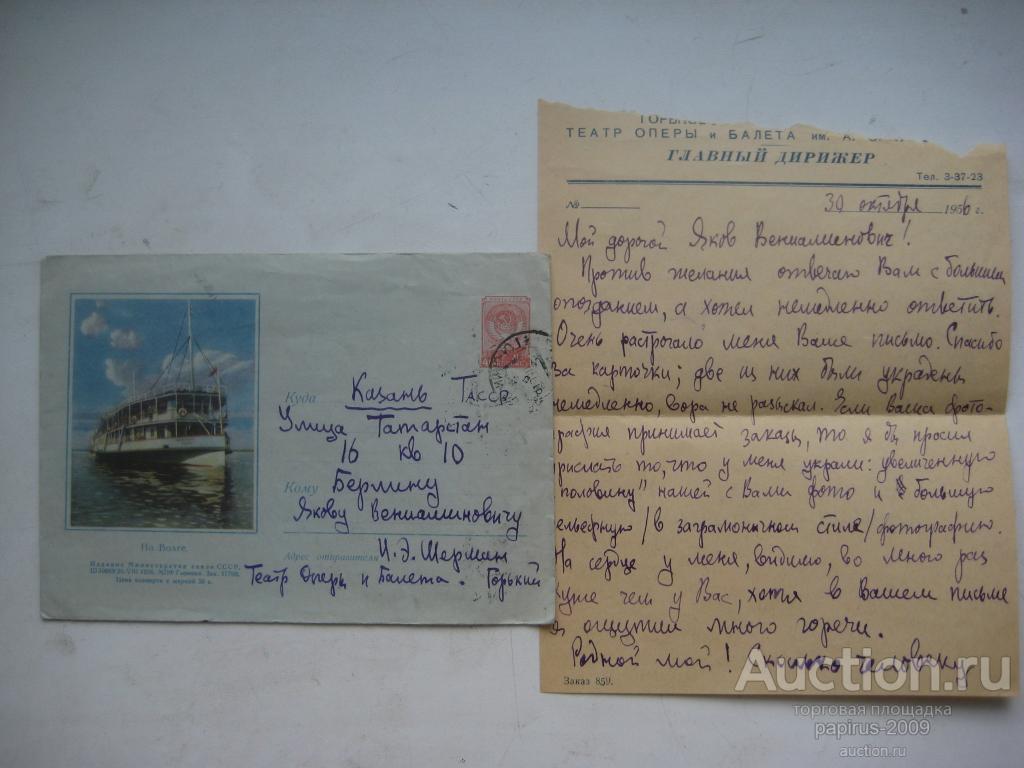 На Волге
Издание Министерства связи СССР.
Цена конверта с маркой 50 к.
Куда Казань ТАССР
Улица Татарстан
16 кв 10
Кому Берлину
Якову Вениаминовичу
Адрес отправителя И. Э. Шерман
Театр Оперы и Балета. Горький
ТЕАТР ОПЕРЫ и БАЛЕТА им. А.
ГЛАВНЫЙ ДИРИЖЕР
Тел. 3-37-23
№ 30 октября 1956 г.
Мой дорогой Яков Вениаминович!
Против желания отвечаю Вам с большим
опозданием, а хотел немедленно ответить.
Очень растрогало меня Ваше письмо. Спасибо
за карточки; две из них были украдены
немедленно, вора не разыскал. Если ваша фото-
графия принимает заказы, то я бы просил
прислать то, что у меня украли: увеличенную
"половину" нашей с Вами фото и большую
рельефную /в заграничном стиле/ фотографию.
На сердце у меня, видимо, во много раз
хуже чем у Вас, хотя в Вашем письме
я ощутил много горечи.
Родной мой! Сколько человеку
Заказ 859.
Auction.ru
торговая площадка
papirus-2009
auction.ru